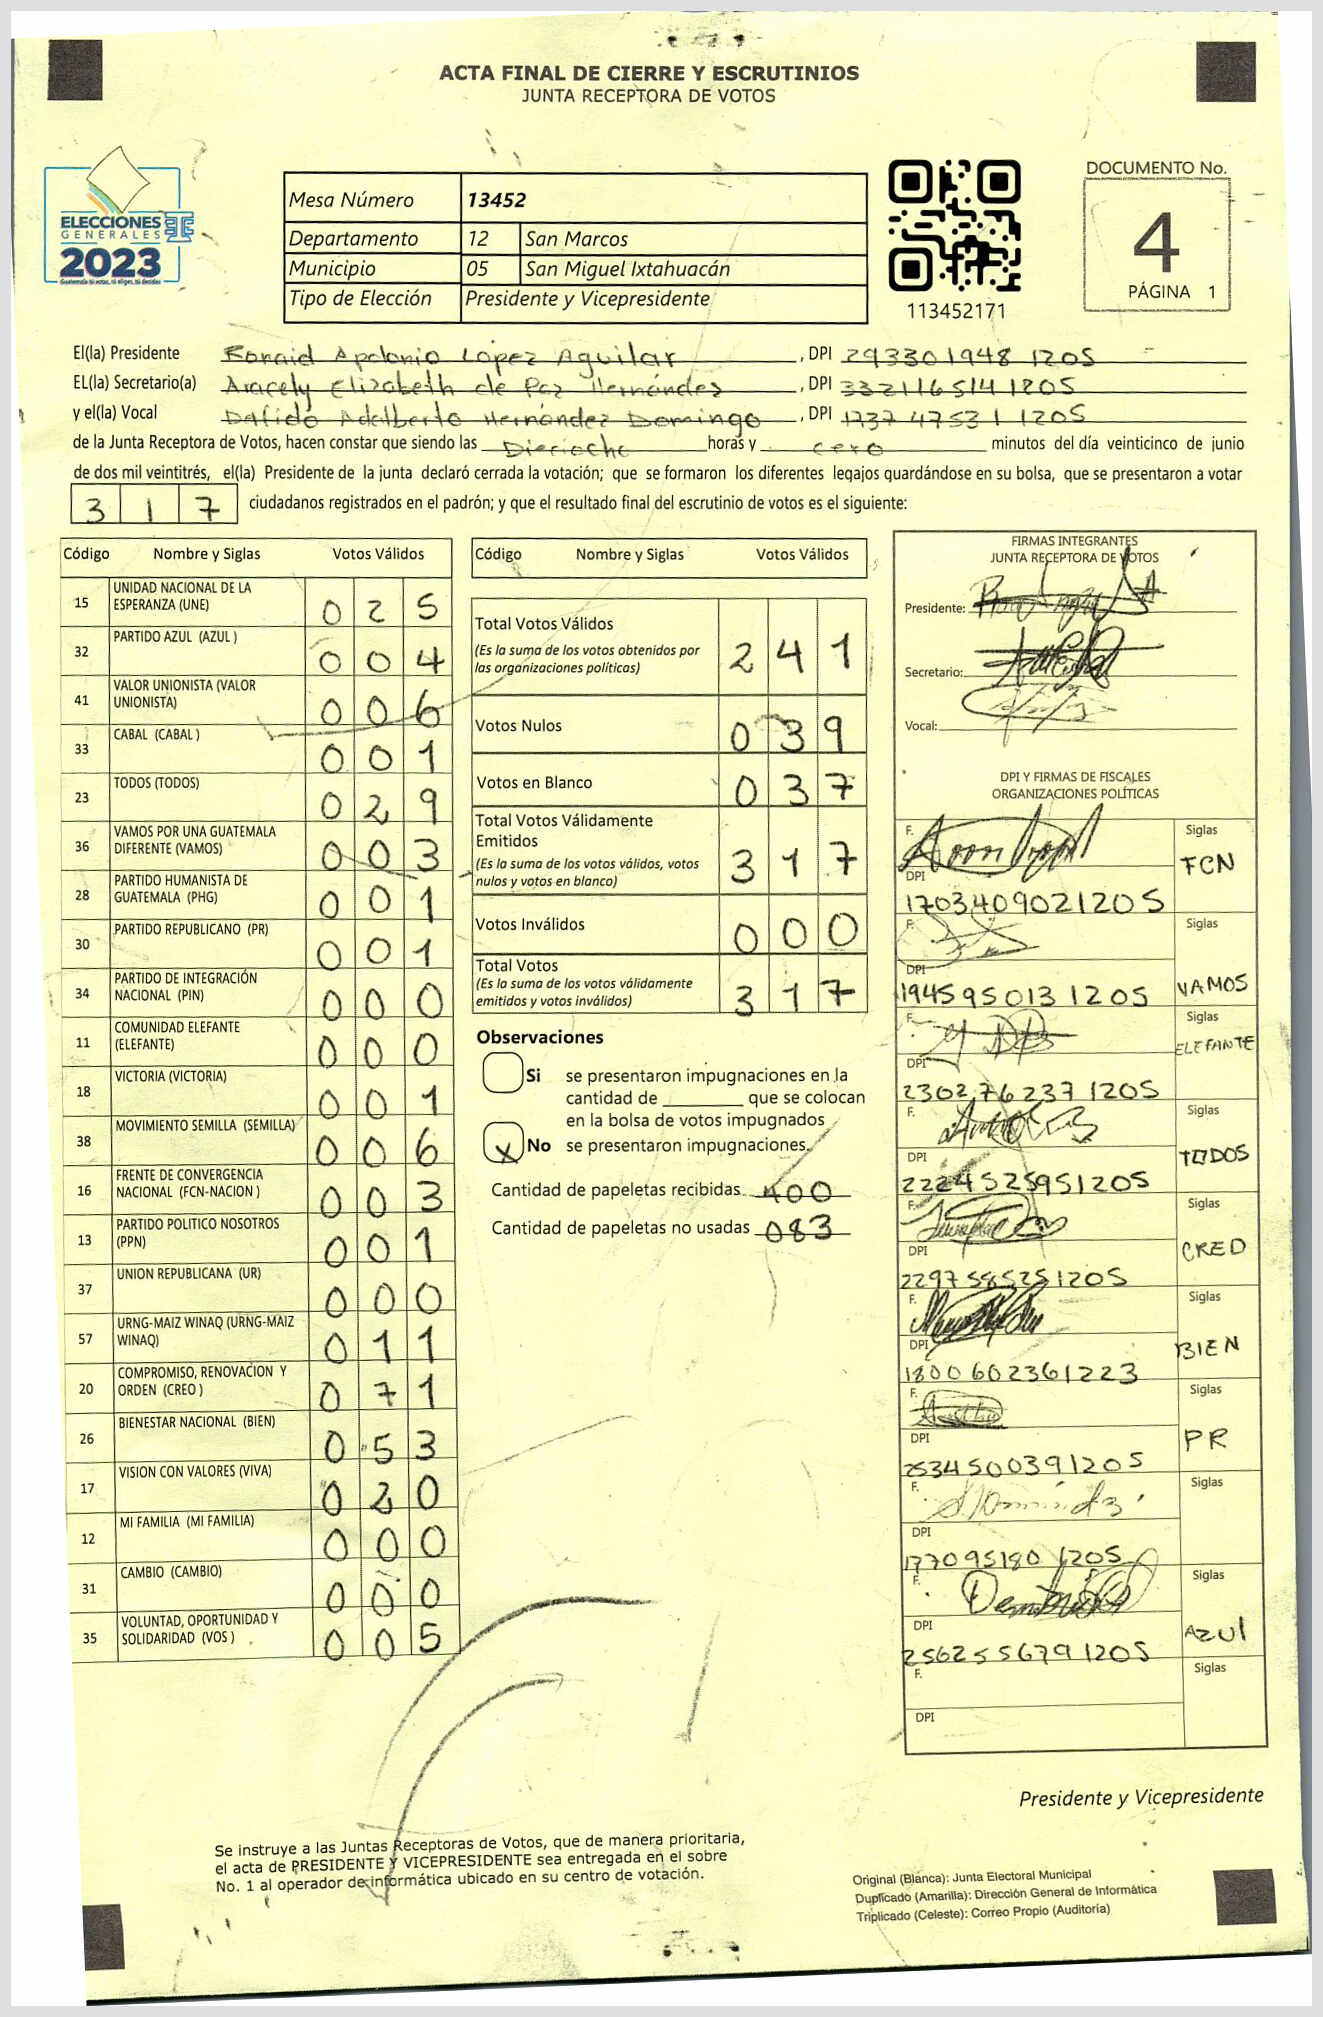 ACTA FINAL DE CIERRE Y ESCRUTINIOS
JUNTA RECEPTORA DE VOTOS
ELECCIONES
GENERALES
2023
Guatemala tú votas, tú eliges, tú decides
Mesa Número 13452
Departamento 12 San Marcos
Municipio 05 San Miguel Ixtahuacán
Tipo de Elección Presidente y Vicepresidente
113452171
DOCUMENTO No.
4
PÁGINA 1
El(la) Presidente Ronald Apolonio López Aguilar, DPI 293301948 1205
EL(la) Secretario(a) Aracely Elizabeth de Paz Hernández, DPI 332116514 1205
y el(la) Vocal Adalberto Hernández Domingo, DPI 1737 47531 1205
de la Junta Receptora de Votos, hacen constar que siendo las Dieciocho horas y cero minutos del día veinticinco de junio
de dos mil veintitrés, el(la) Presidente de la junta declaró cerrada la votación; que se formaron los diferentes legajos guardándose en su bolsa, que se presentaron a votar
317 ciudadanos registrados en el padrón; y que el resultado final del escrutinio de votos es el siguiente:
Código Nombre y Siglas Votos Válidos
15 UNIDAD NACIONAL DE LA ESPERANZA (UNE) 025
32 PARTIDO AZUL (AZUL ) 004
41 VALOR UNIONISTA (VALOR UNIONISTA) 006
33 CABAL (CABAL ) 001
23 TODOS (TODOS) 029
36 VAMOS POR UNA GUATEMALA DIFERENTE (VAMOS) 003
28 PARTIDO HUMANISTA DE GUATEMALA (PHG) 001
30 PARTIDO REPUBLICANO (PR) 001
34 PARTIDO DE INTEGRACIÓN NACIONAL (PIN) 000
11 COMUNIDAD ELEFANTE (ELEFANTE) 000
18 VICTORIA (VICTORIA) 001
38 MOVIMIENTO SEMILLA (SEMILLA) 006
16 FRENTE DE CONVERGENCIA NACIONAL (FCN-NACION ) 003
13 PARTIDO POLITICO NOSOTROS (PPN) 001
37 UNION REPUBLICANA (UR) 000
57 URNG-MAIZ WINAQ (URNG-MAIZ WINAQ) 011
20 COMPROMISO, RENOVACION Y ORDEN (CREO ) 071
26 BIENESTAR NACIONAL (BIEN) 053
17 VISION CON VALORES (VIVA) 020
12 MI FAMILIA (MI FAMILIA) 000
31 CAMBIO (CAMBIO) 000
35 VOLUNTAD, OPORTUNIDAD Y SOLIDARIDAD (VOS ) 005
Código Nombre y Siglas Votos Válidos
Total Votos Válidos 241
(Es la suma de los votos obtenidos por
las organizaciones políticas)
Votos Nulos 039
Votos en Blanco 037
Total Votos Válidamente
Emitidos 317
(Es la suma de los votos válidos, votos
nulos y votos en blanco)
Votos Inválidos 000
Total Votos 317
(Es la suma de los votos válidamente
emitidos y votos inválidos)
Observaciones
Si se presentaron impugnaciones en la
cantidad de que se colocan
en la bolsa de votos impugnados
x No se presentaron impugnaciones.
Cantidad de papeletas recibidas 400
Cantidad de papeletas no usadas 083
FIRMAS INTEGRANTES
JUNTA RECEPTORA DE VOTOS
Presidente:
Secretario:
Vocal:
DPI Y FIRMAS DE FISCALES
ORGANIZACIONES POLÍTICAS
F. Siglas
FCN
DPI
1703409021205
F. Siglas
DPI
1945950131205 VAMOS
F. Siglas
ELEFANTE
DPI
2302762371205
F. Siglas
DPI TODOS
2224525951205
F. Siglas
DPI CREO
2297585251205
F. Siglas
DPI BIEN
1800602361223
F. Siglas
DPI PR
2534500391205
F. Siglas
DPI
177095180 1205
F. Siglas
DPI AZUL
2562556791205
F. Siglas
DPI
Presidente y Vicepresidente
Se instruye a las Juntas Receptoras de Votos, que de manera prioritaria,
el acta de PRESIDENTE Y VICEPRESIDENTE sea entregada en el sobre
No. 1 al operador de informática ubicado en su centro de votación.
Original (Blanca): Junta Electoral Municipal
Duplicado (Amarilla): Dirección General de Informática
Triplicado (Celeste): Correo Propio (Auditoría)